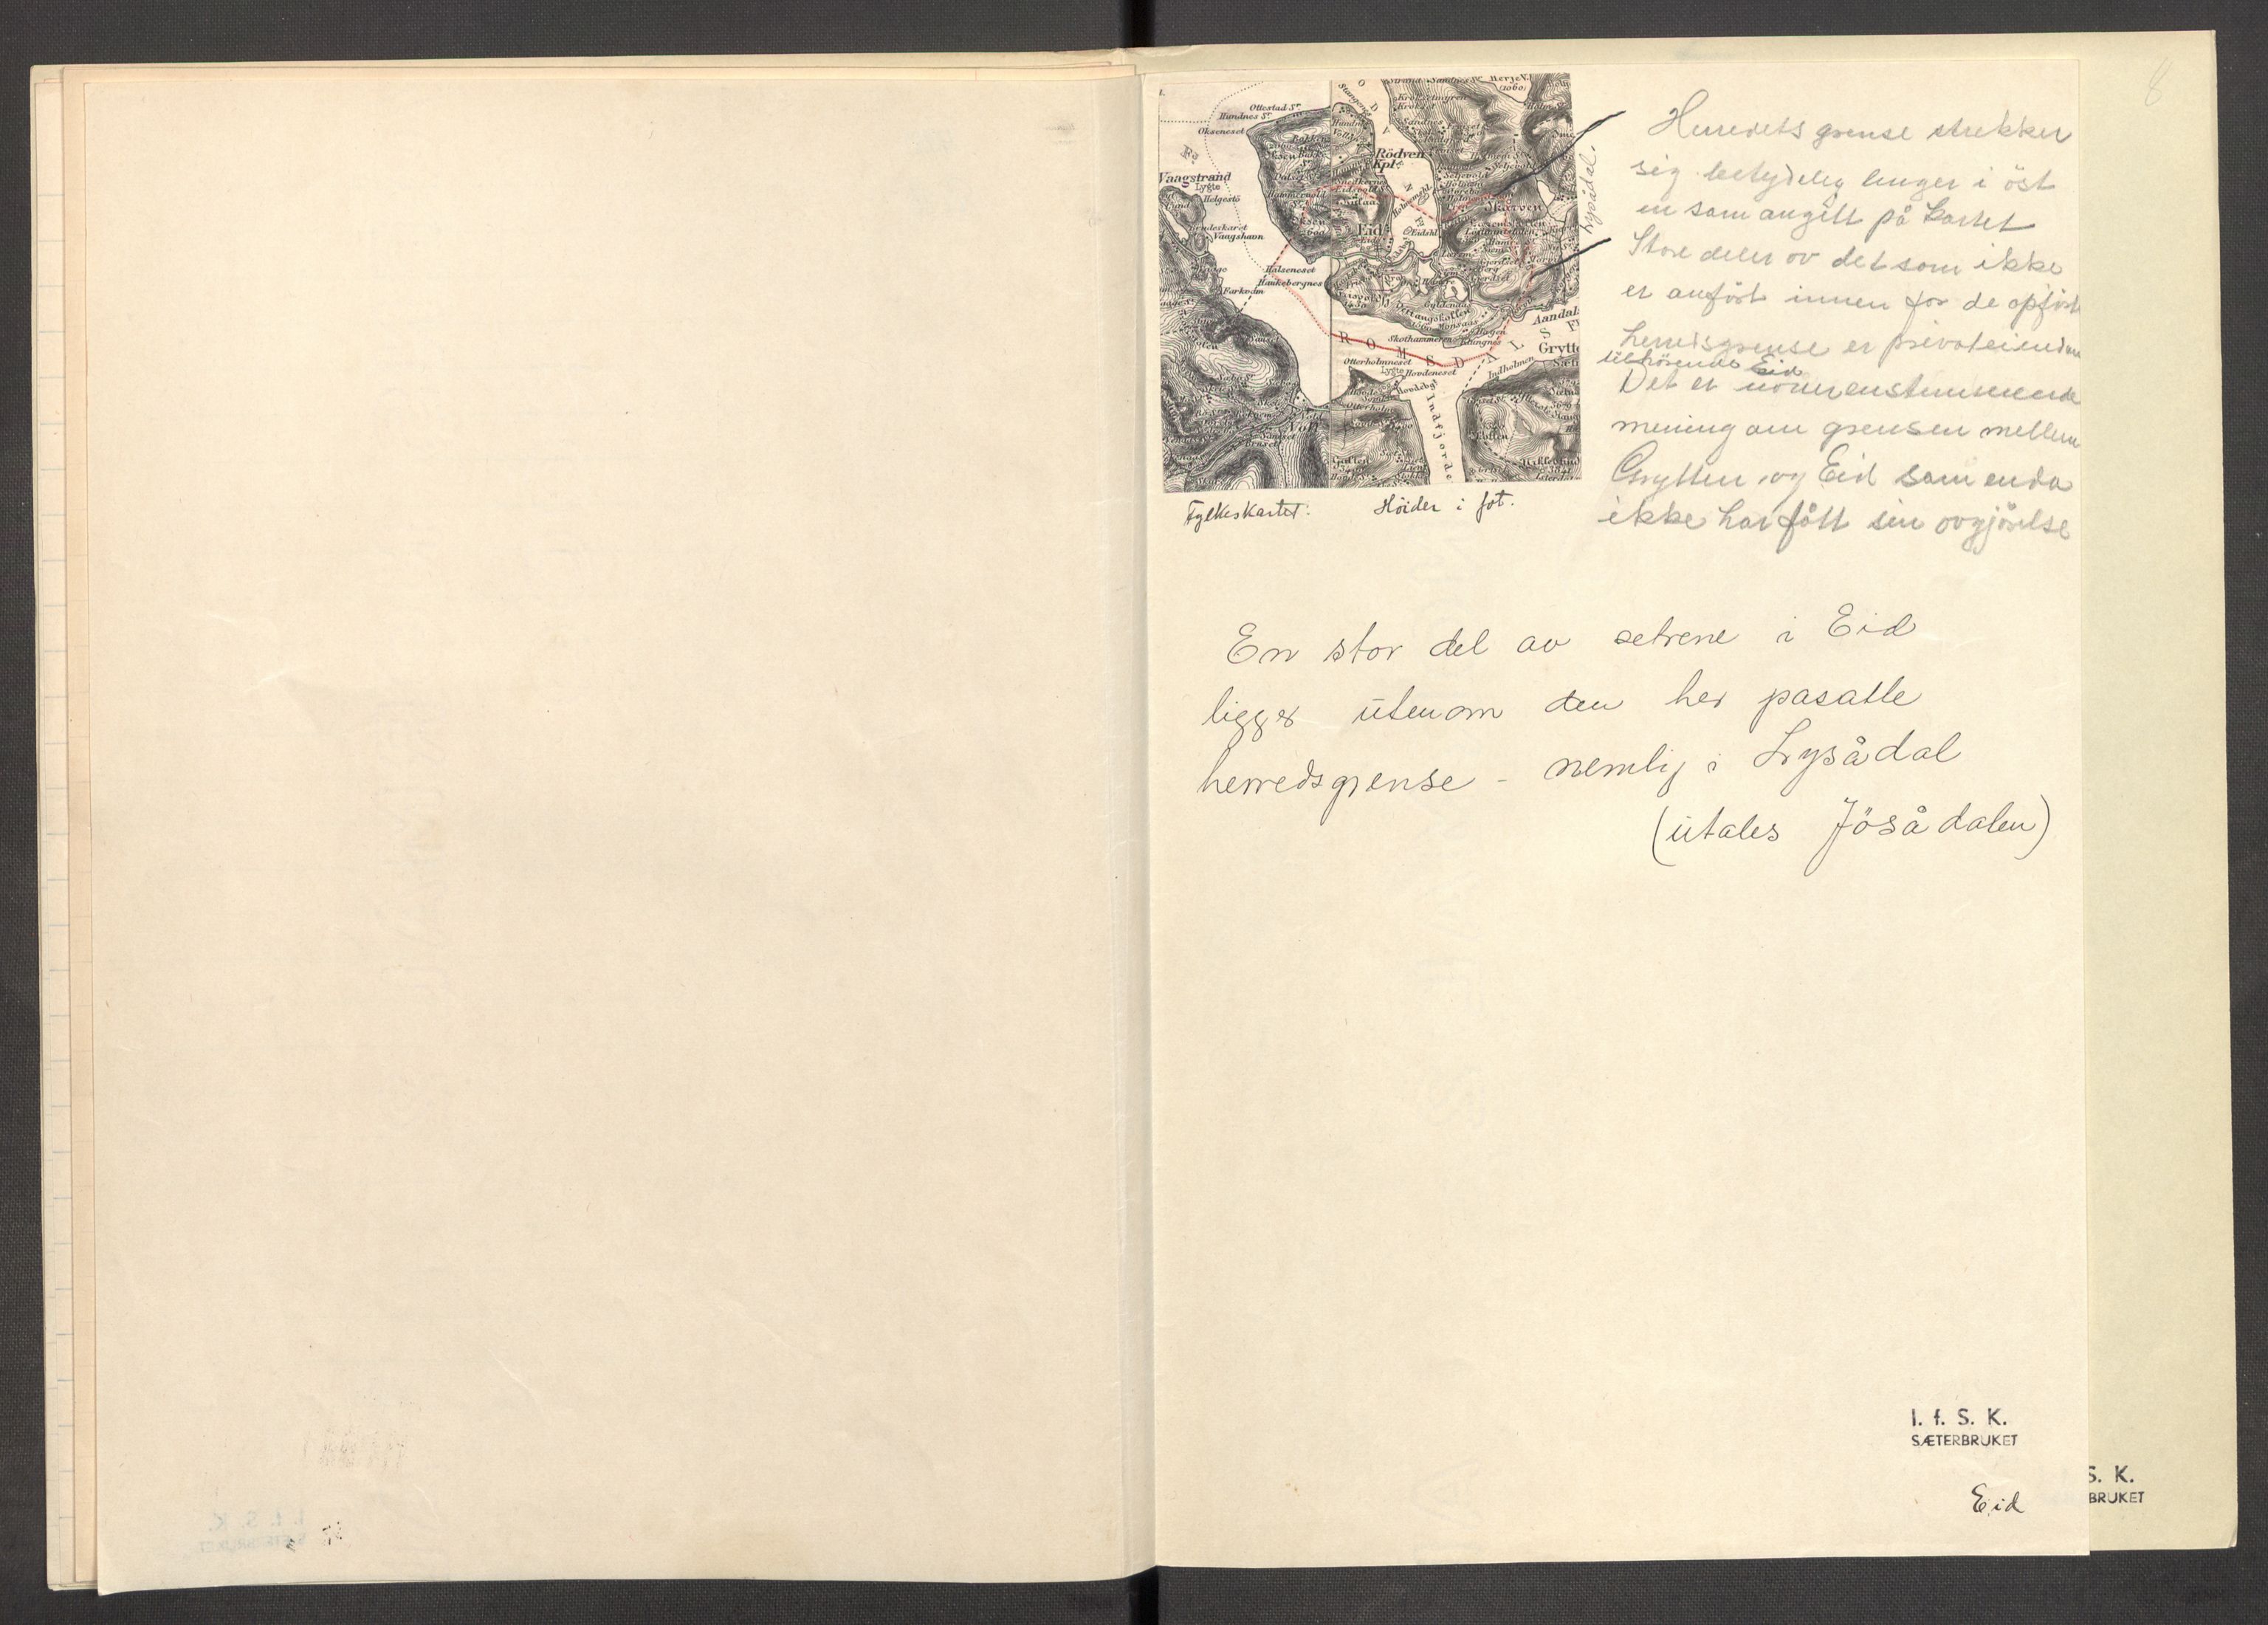 8
Herredets grense strekker
sig betydelig lenger i öst
en som angitt på kartet
Store deler av det som ikke
er anfört innen for de opförte
herredsgrense er privateiendom
tilhörende Eid
Det er uoverenstemmende
mening om grensen mellem
Grytten og Eid som enda
ikke har fått sin avgjörelse
Lysådal.
Ottestad Sr.
Hundnes Sr.
Okseneset
Vaagstrand
Lygte
Helgestö
Vaagshavn
Farkvam
Halseneset
Haukebergnes
Rödven
Kpl.
Eid
Skothammeren
Klungnes
ROMSDALS
Otterholmneset
Lygte
Hovdeneset
Indholmen
Aandals
Grytte
Indfjorde
Void
Fylkeskartet:   Höider i fot.
En stor del av setrene i Eid
ligger utenom den her pasatte
herredsgrense - nemlig i Lysådal
(utales Jösådalen)
I. f. S. K.
SÆTERBRUKET
Eid
S. K.
BRUKET